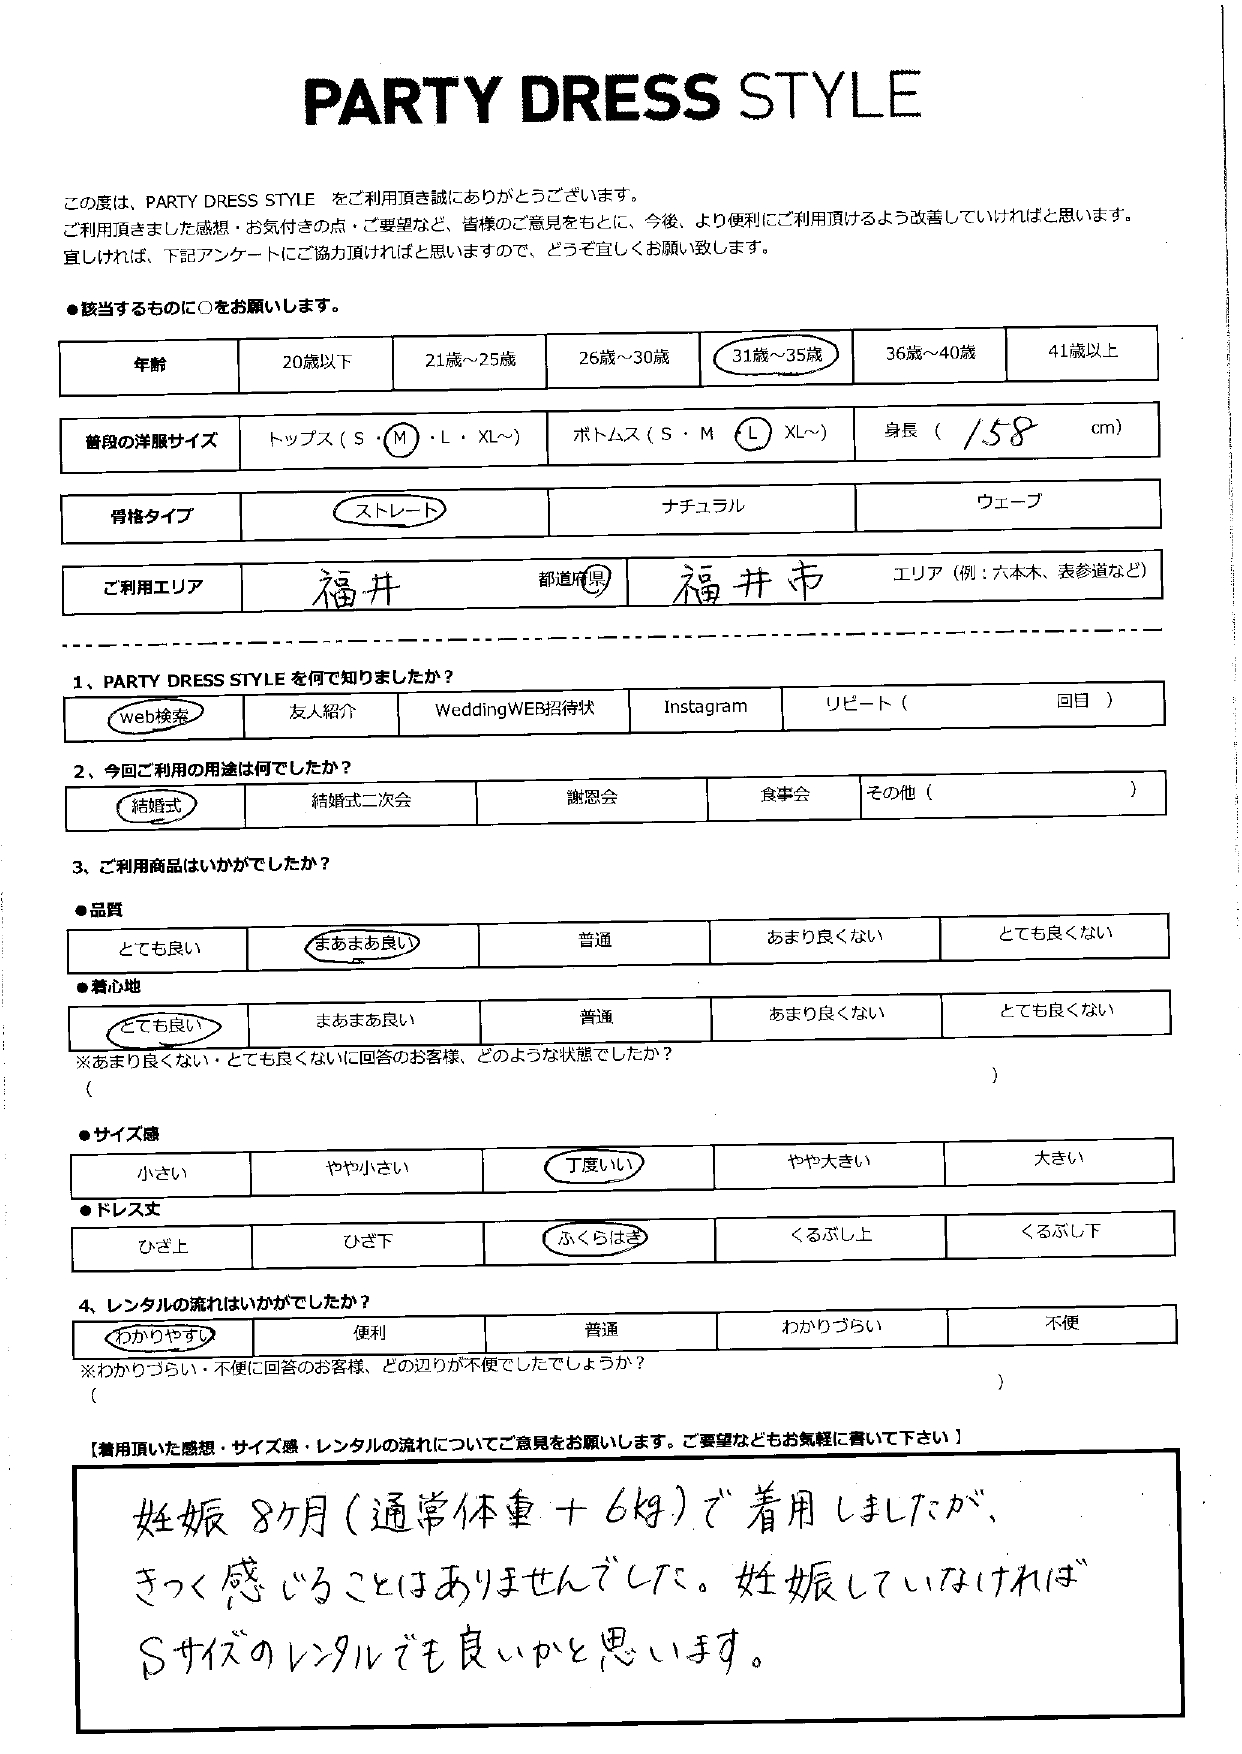 PARTY DRESS STYLE
この度は、PARTY DRESS STYLE をご利用頂き誠にありがとうございます。
ご利用頂きました感想・お気付きの点・ご要望など、皆様のご意見をもとに、今後、より便利にご利用頂けるよう改善していければと思います。
宜しければ、下記アンケートにご協力頂ければと思いますので、どうぞ宜しくお願い致します。
●該当するものに○をお願いします。
年齢 20歳以下 21歳～25歳 26歳～30歳 31歳～35歳 36歳～40歳 41歳以上
普段の洋服サイズ トップス（ S ・ M ・ L ・ XL～） ボトムス（ S ・ M L XL～） 身長 （ 158 cm）
骨格タイプ ストレート ナチュラル ウェーブ
ご利用エリア 福井 都道府県 福井市 エリア（例：六本木、表参道など）
1、PARTY DRESS STYLE を何で知りましたか？
web検索 友人紹介 WeddingWEB招待状 Instagram リピート（ 回目 ）
2、今回ご利用の用途は何でしたか？
結婚式 結婚式二次会 謝恩会 食事会 その他（ ）
3、ご利用商品はいかがでしたか？
●品質
とても良い まあまあ良い 普通 あまり良くない とても良くない
●着心地
とても良い まあまあ良い 普通 あまり良くない とても良くない
※あまり良くない・とても良くないに回答のお客様、どのような状態でしたか？
（ ）
●サイズ感
小さい やや小さい 丁度いい やや大きい 大きい
●ドレス丈
ひざ上 ひざ下 ふくらはぎ くるぶし上 くるぶし下
4、レンタルの流れはいかがでしたか？
わかりやすい 便利 普通 わかりづらい 不便
※わかりづらい・不便に回答のお客様、どの辺りが不便でしたでしょうか？
（ ）
【着用頂いた感想・サイズ感・レンタルの流れについてご意見をお願いします。ご要望などもお気軽に書いて下さい 】
妊娠8ケ月（通常体重＋6kg）で着用しましたが、
きつく感じることはありませんでした。妊娠していなければ
Sサイズのレンタルでも良いかと思います。